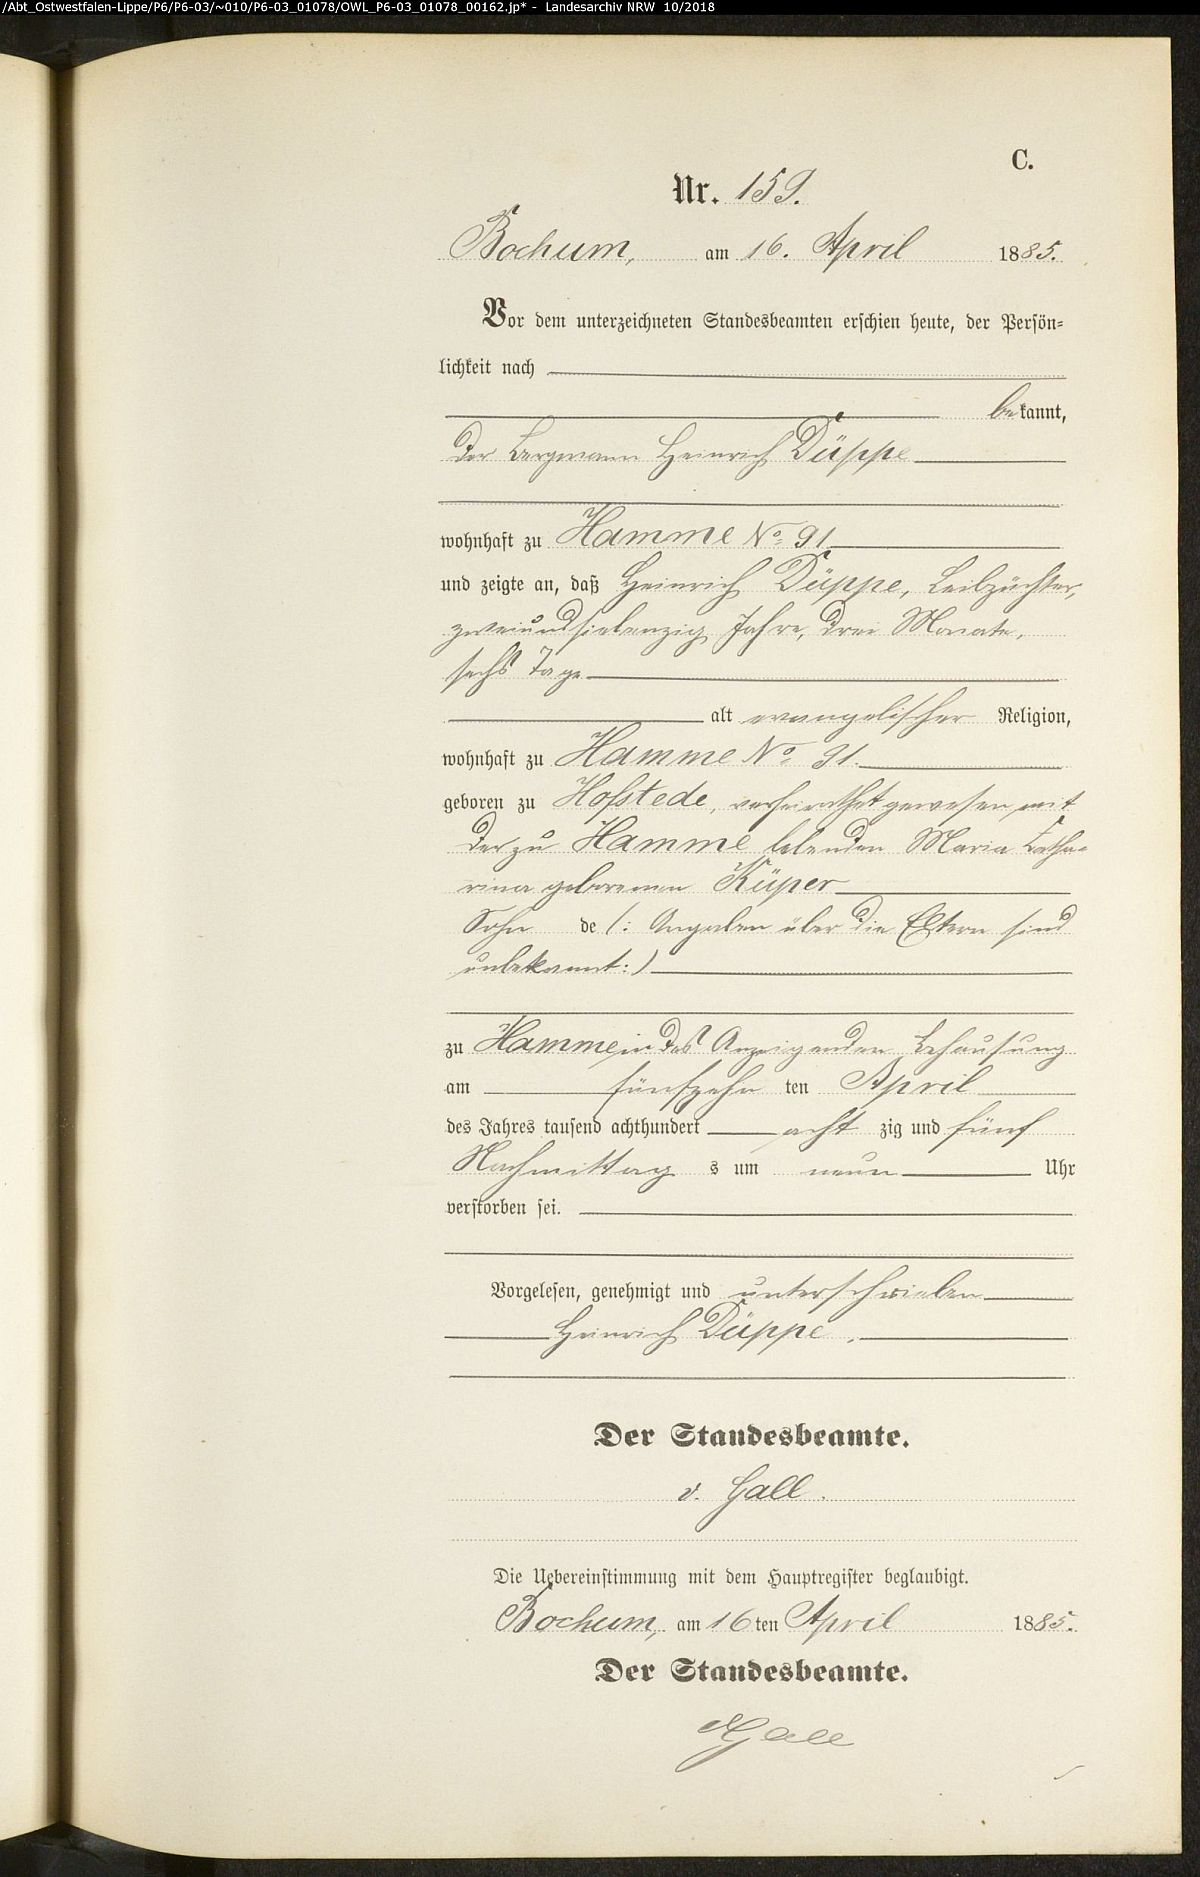 /Abt_Ostwestfalen-Lippe/P6/P6-03/~010/P6-03_01078/OWL_P6-03_01078_00162.jp* - Landesarchiv NRW 10/2018
C.
Nr. 159.
Bochum, am 16. April 1885.
Vor dem unterzeichneten Standesbeamten erschien heute, der Persön-
lichkeit nach
bekannt,
der Bergmann Heinrich Düppe
wohnhaft zu Hamme No 91
und zeigte an, daß Heinrich Düppe, Leibzüchter,
zweiundsiebenzig Jahre, drei Monate,
sechs Tage
alt evangelischer Religion,
wohnhaft zu Hamme No 91.
geboren zu Hofstede, verheirathet gewesen mit
der zu Hamme lebenden Maria Catha-
rina geborenen Küper
Sohn de (: Angaben über die Eltern sind
unbekannt :)
zu Hamme in des Anzeigenden Behausung
am fünfzehn ten April
des Jahres tausend achthundert acht zig und fünf
Nachmittag s um neun Uhr
verstorben sei.
Vorgelesen, genehmigt und unterschrieben
Heinrich Düppe.
Der Standesbeamte.
v. Gall.
Die Uebereinstimmung mit dem Hauptregister beglaubigt.
Bochum, am 16 ten April 1885.
Der Standesbeamte.
v Gall